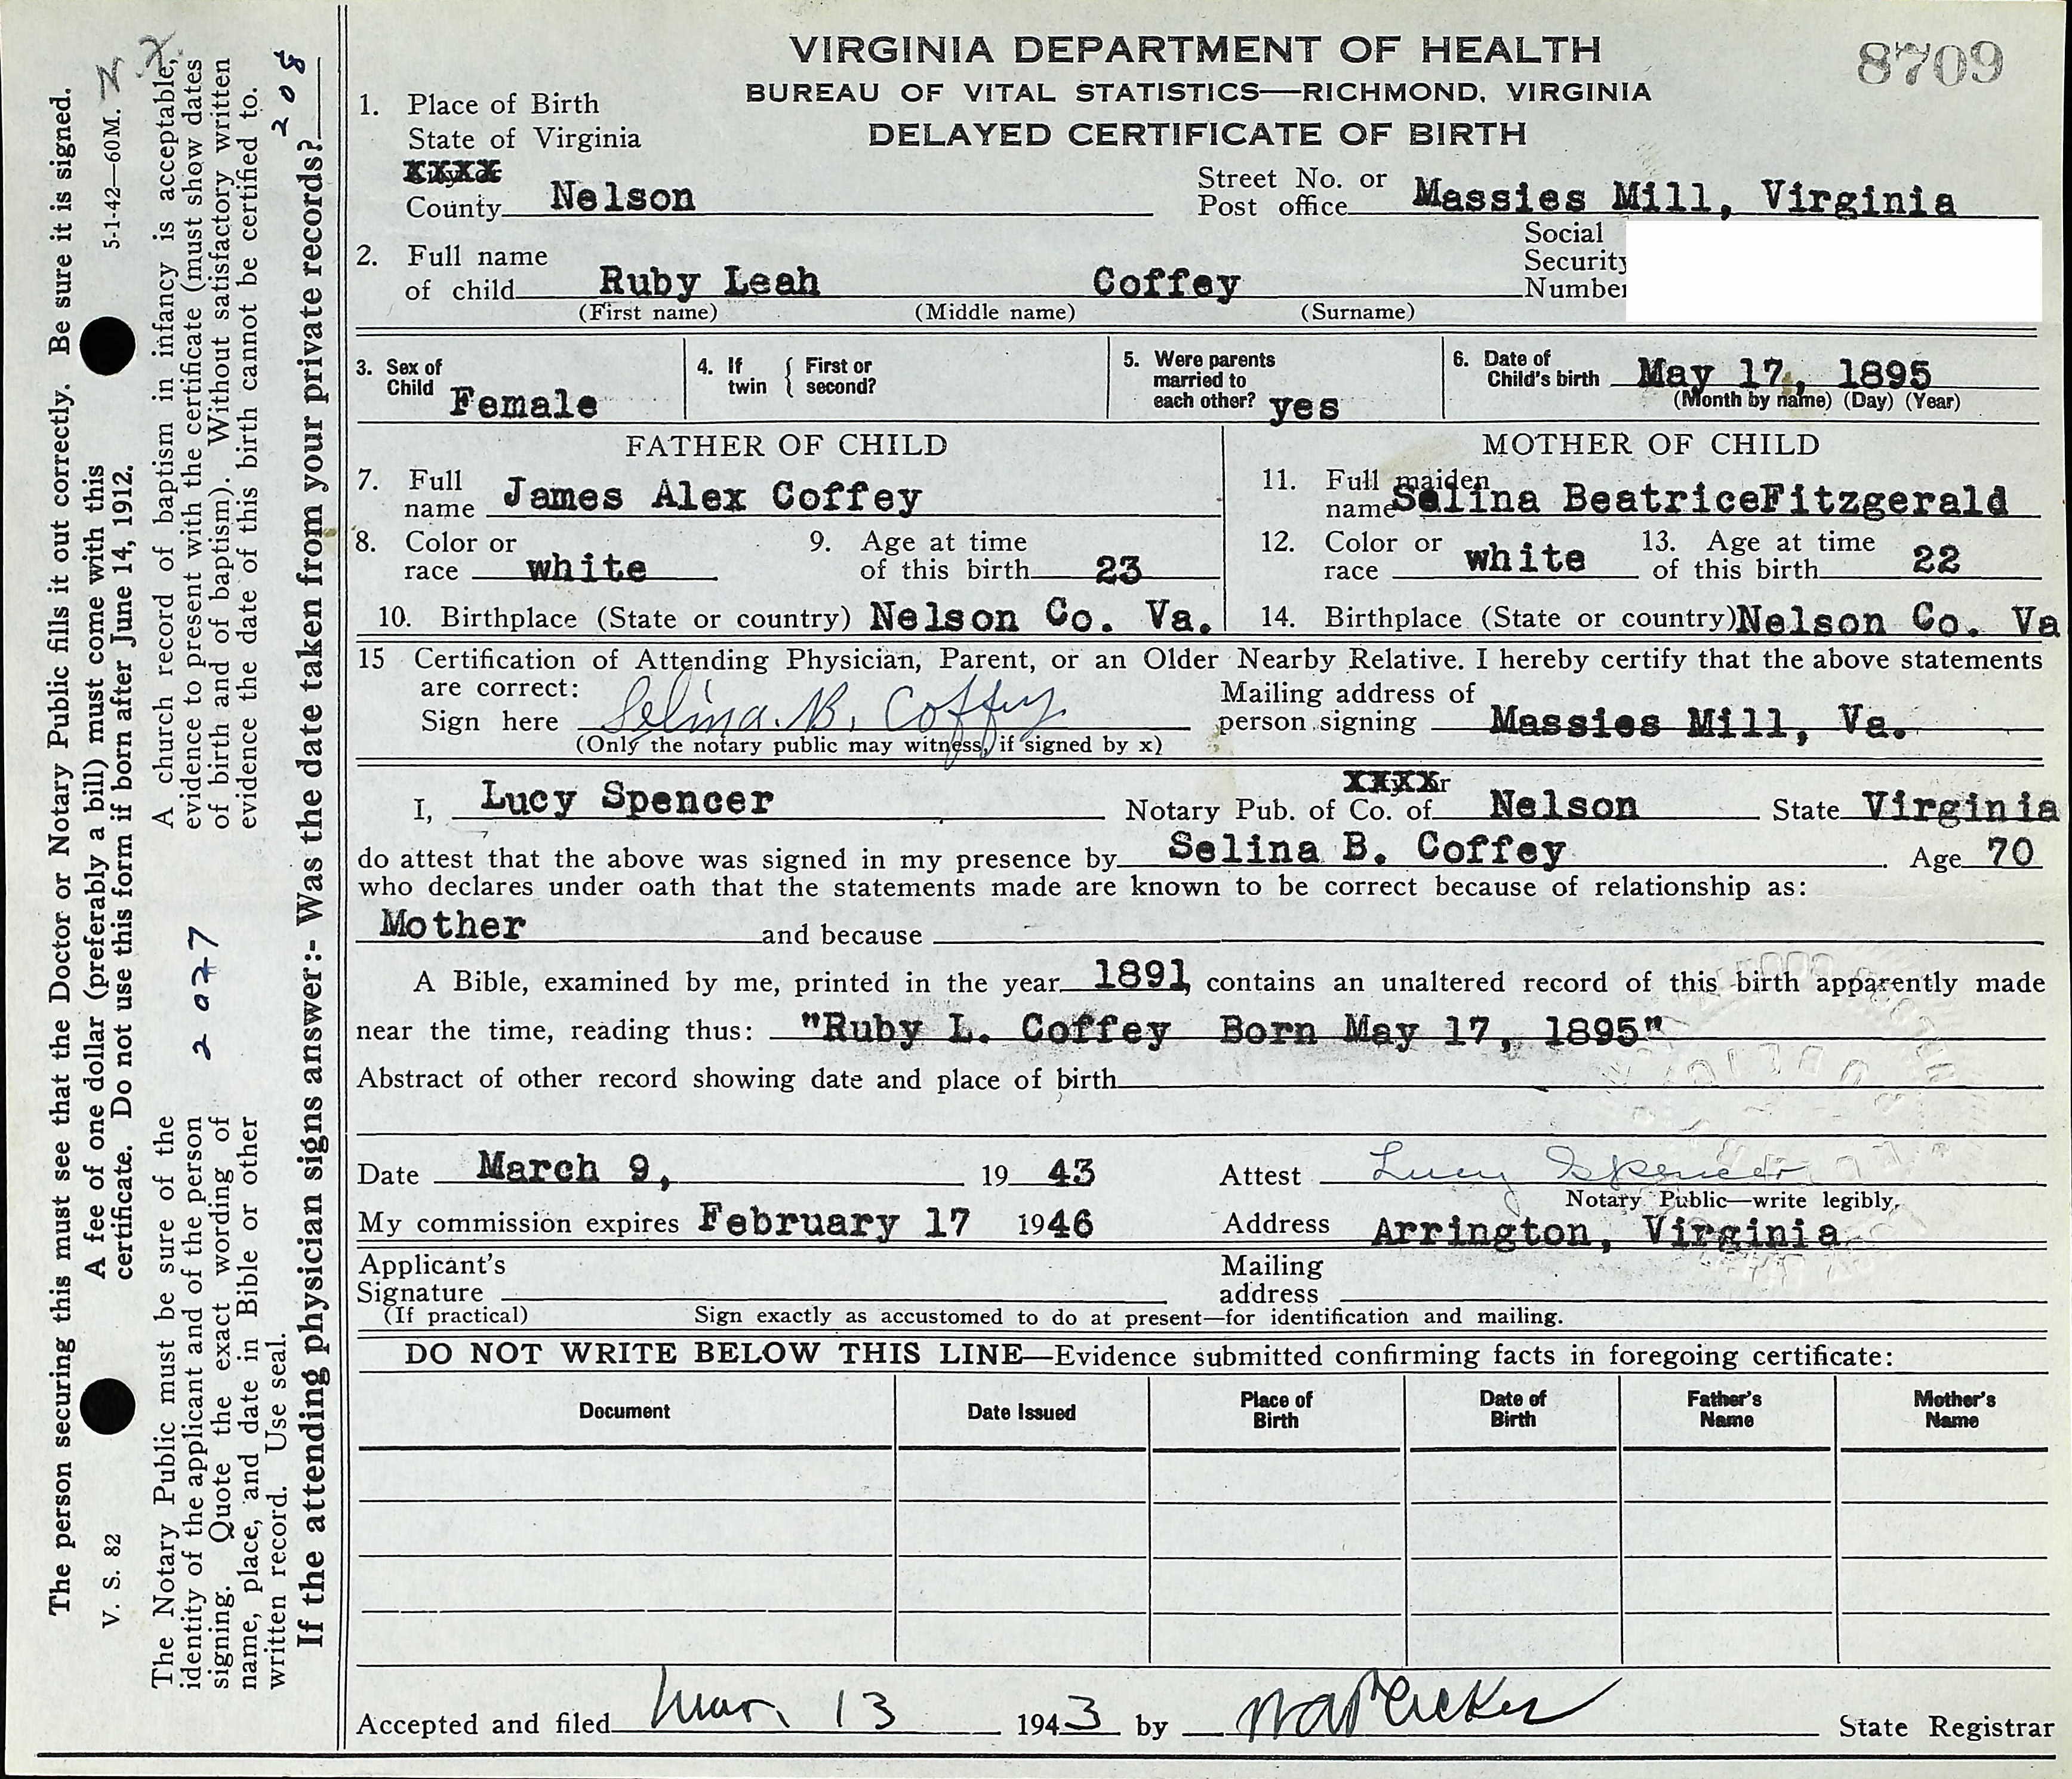 VIRGINIA DEPARTMENT OF HEALTH
8709
BUREAU OF VITAL STATISTICS—RICHMOND, VIRGINIA
DELAYED CERTIFICATE OF BIRTH
1. Place of Birth
State of Virginia
County Nelson
Street No. or Post office Massies Mill, Virginia
2. Full name of child Ruby Leah Coffey
(First name) (Middle name) (Surname)
Social Security Number
3. Sex of Child Female
4. If twin { First or second?
5. Were parents married to each other? yes
6. Date of Child's birth May 17, 1895
(Month by name) (Day) (Year)
FATHER OF CHILD
MOTHER OF CHILD
7. Full name James Alex Coffey
11. Full maiden name Selina BeatriceFitzgerald
8. Color or race white
9. Age at time of this birth 23
12. Color or race white
13. Age at time of this birth 22
10. Birthplace (State or country) Nelson Co. Va.
14. Birthplace (State or country) Nelson Co. Va
15 Certification of Attending Physician, Parent, or an Older Nearby Relative. I hereby certify that the above statements
are correct:
Sign here Selina. B. Coffey
(Only the notary public may witness, if signed by x)
Mailing address of person signing Massies Mill, Va.
I, Lucy Spencer Notary Pub. of Co. of Nelson State Virginia
do attest that the above was signed in my presence by Selina B. Coffey. Age 70
who declares under oath that the statements made are known to be correct because of relationship as:
Mother and because
A Bible, examined by me, printed in the year 1891, contains an unaltered record of this birth apparently made
near the time, reading thus: "Ruby L. Coffey Born May 17, 1895"
Abstract of other record showing date and place of birth
Date March 9, 19 43
Attest Lucy Spencer
Notary Public—write legibly.
My commission expires February 17 1946
Address Arrington, Virginia
Applicant's Signature
(If practical)
Mailing address
Sign exactly as accustomed to do at present—for identification and mailing.
DO NOT WRITE BELOW THIS LINE—Evidence submitted confirming facts in foregoing certificate:
Document
Date Issued
Place of Birth
Date of Birth
Father's Name
Mother's Name
Accepted and filed Mar. 13 1943 by State Registrar
The person securing this must see that the Doctor or Notary Public fills it out correctly. Be sure it is signed.
V. S. 82
A fee of one dollar (preferably a bill) must come with this
certificate. Do not use this form if born after June 14, 1912.
5-1-42—60M.
The Notary Public must be sure of the
identity of the applicant and of the person
signing. Quote the exact wording of
name, place, and date in Bible or other
written record. Use seal.
2027
A church record of baptism in infancy is acceptable,
evidence to present with the certificate (must show dates
of birth and of baptism). Without satisfactory written
evidence the date of this birth cannot be certified to.
If the attending physician signs answer:- Was the date taken from your private records?
208